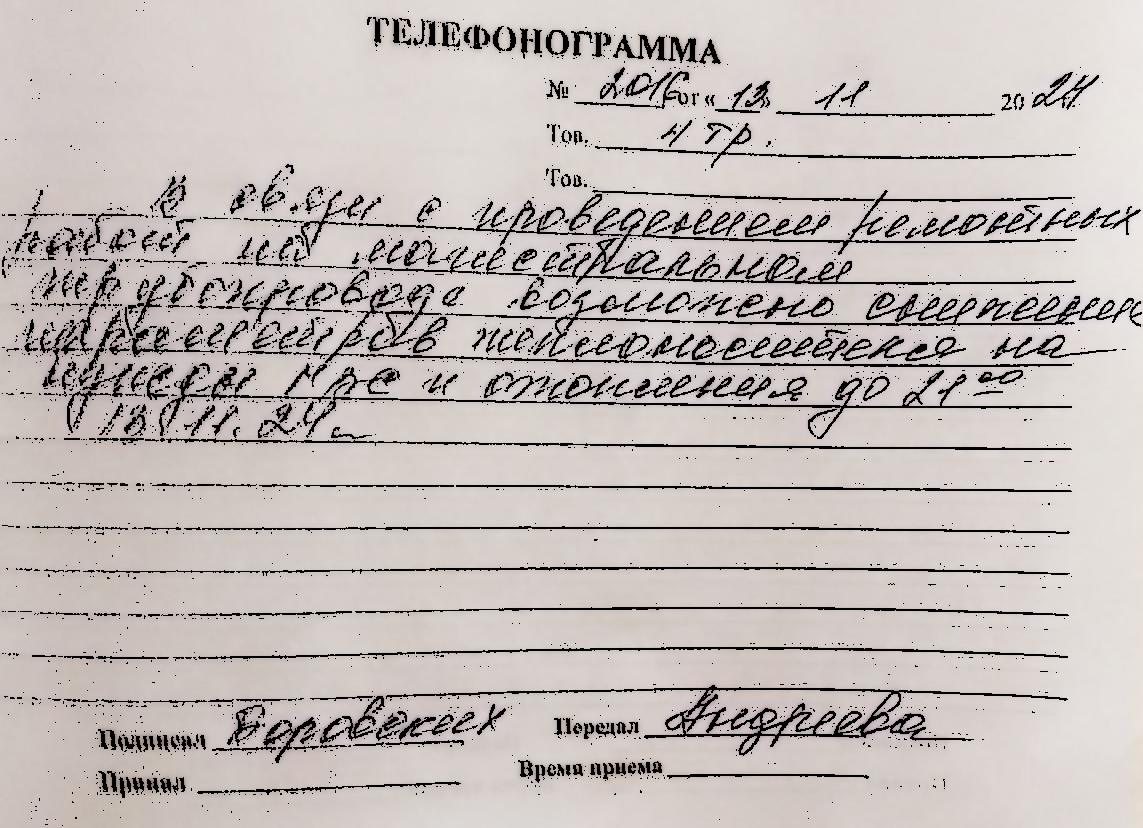 ТЕЛЕФОНОГРАММА
№ 2016 от « 13 » 11 20 24
Тов. 4 тр.
Тов.
В связи с проведением ремонтных
работ на магистральном
трубопроводе возможно снижение
параметров теплоносителя на
нужды ГВС и отопления до 21⁰⁰
13.11.24г.
Подписал Боровских Передал Андреева
Принял Время приема